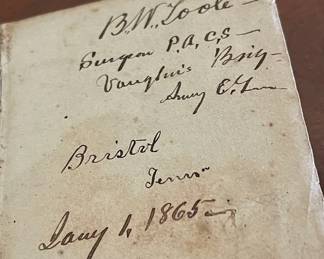 B.W. Toole
Surgeon P.A.C.S
Vaughn's Brig
Army E. Tenn
Bristol
Tenn
Jany 1, 1865